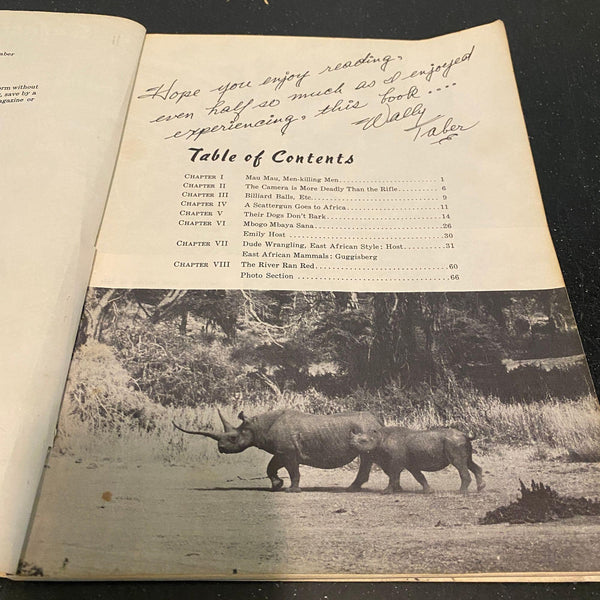 aber
orm without
, save by a
agazine or
Hope you enjoy reading,
even half so much as I enjoyed
experiencing, this book....
Wally
Taber
Table of Contents
CHAPTER I Mau Mau, Men-killing Men 1
CHAPTER II The Camera is More Deadly Than the Rifle 6
CHAPTER III Billiard Balls, Etc. 9
CHAPTER IV A Scattergun Goes to Africa 11
CHAPTER V Their Dogs Don't Bark 14
CHAPTER VI Mbogo Mbaya Sana 26
Emily Host 30
CHAPTER VII Dude Wrangling, East African Style: Host 31
East African Mammals: Guggisberg
CHAPTER VIII The River Ran Red 60
Photo Section 66